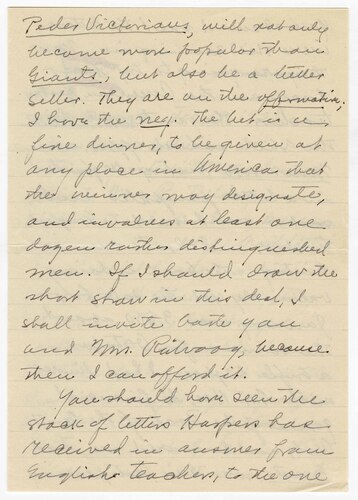 Peder Victorious, will not only
become more popular than
Giants, but also be a better
seller. They are on the affirmative,
I have the neg. The bet is a
fine dinner, to be given at
any place in America that
the winner may designate,
and involves at least one
dozen rather distinguished
men. If I should draw the
short straw in this deal, I
shall invite both you
and Mrs. Rölvaag, because
then I can afford it.
You should have seen the
stack of letters Harpers has
received in answer from
English teachers, to the one